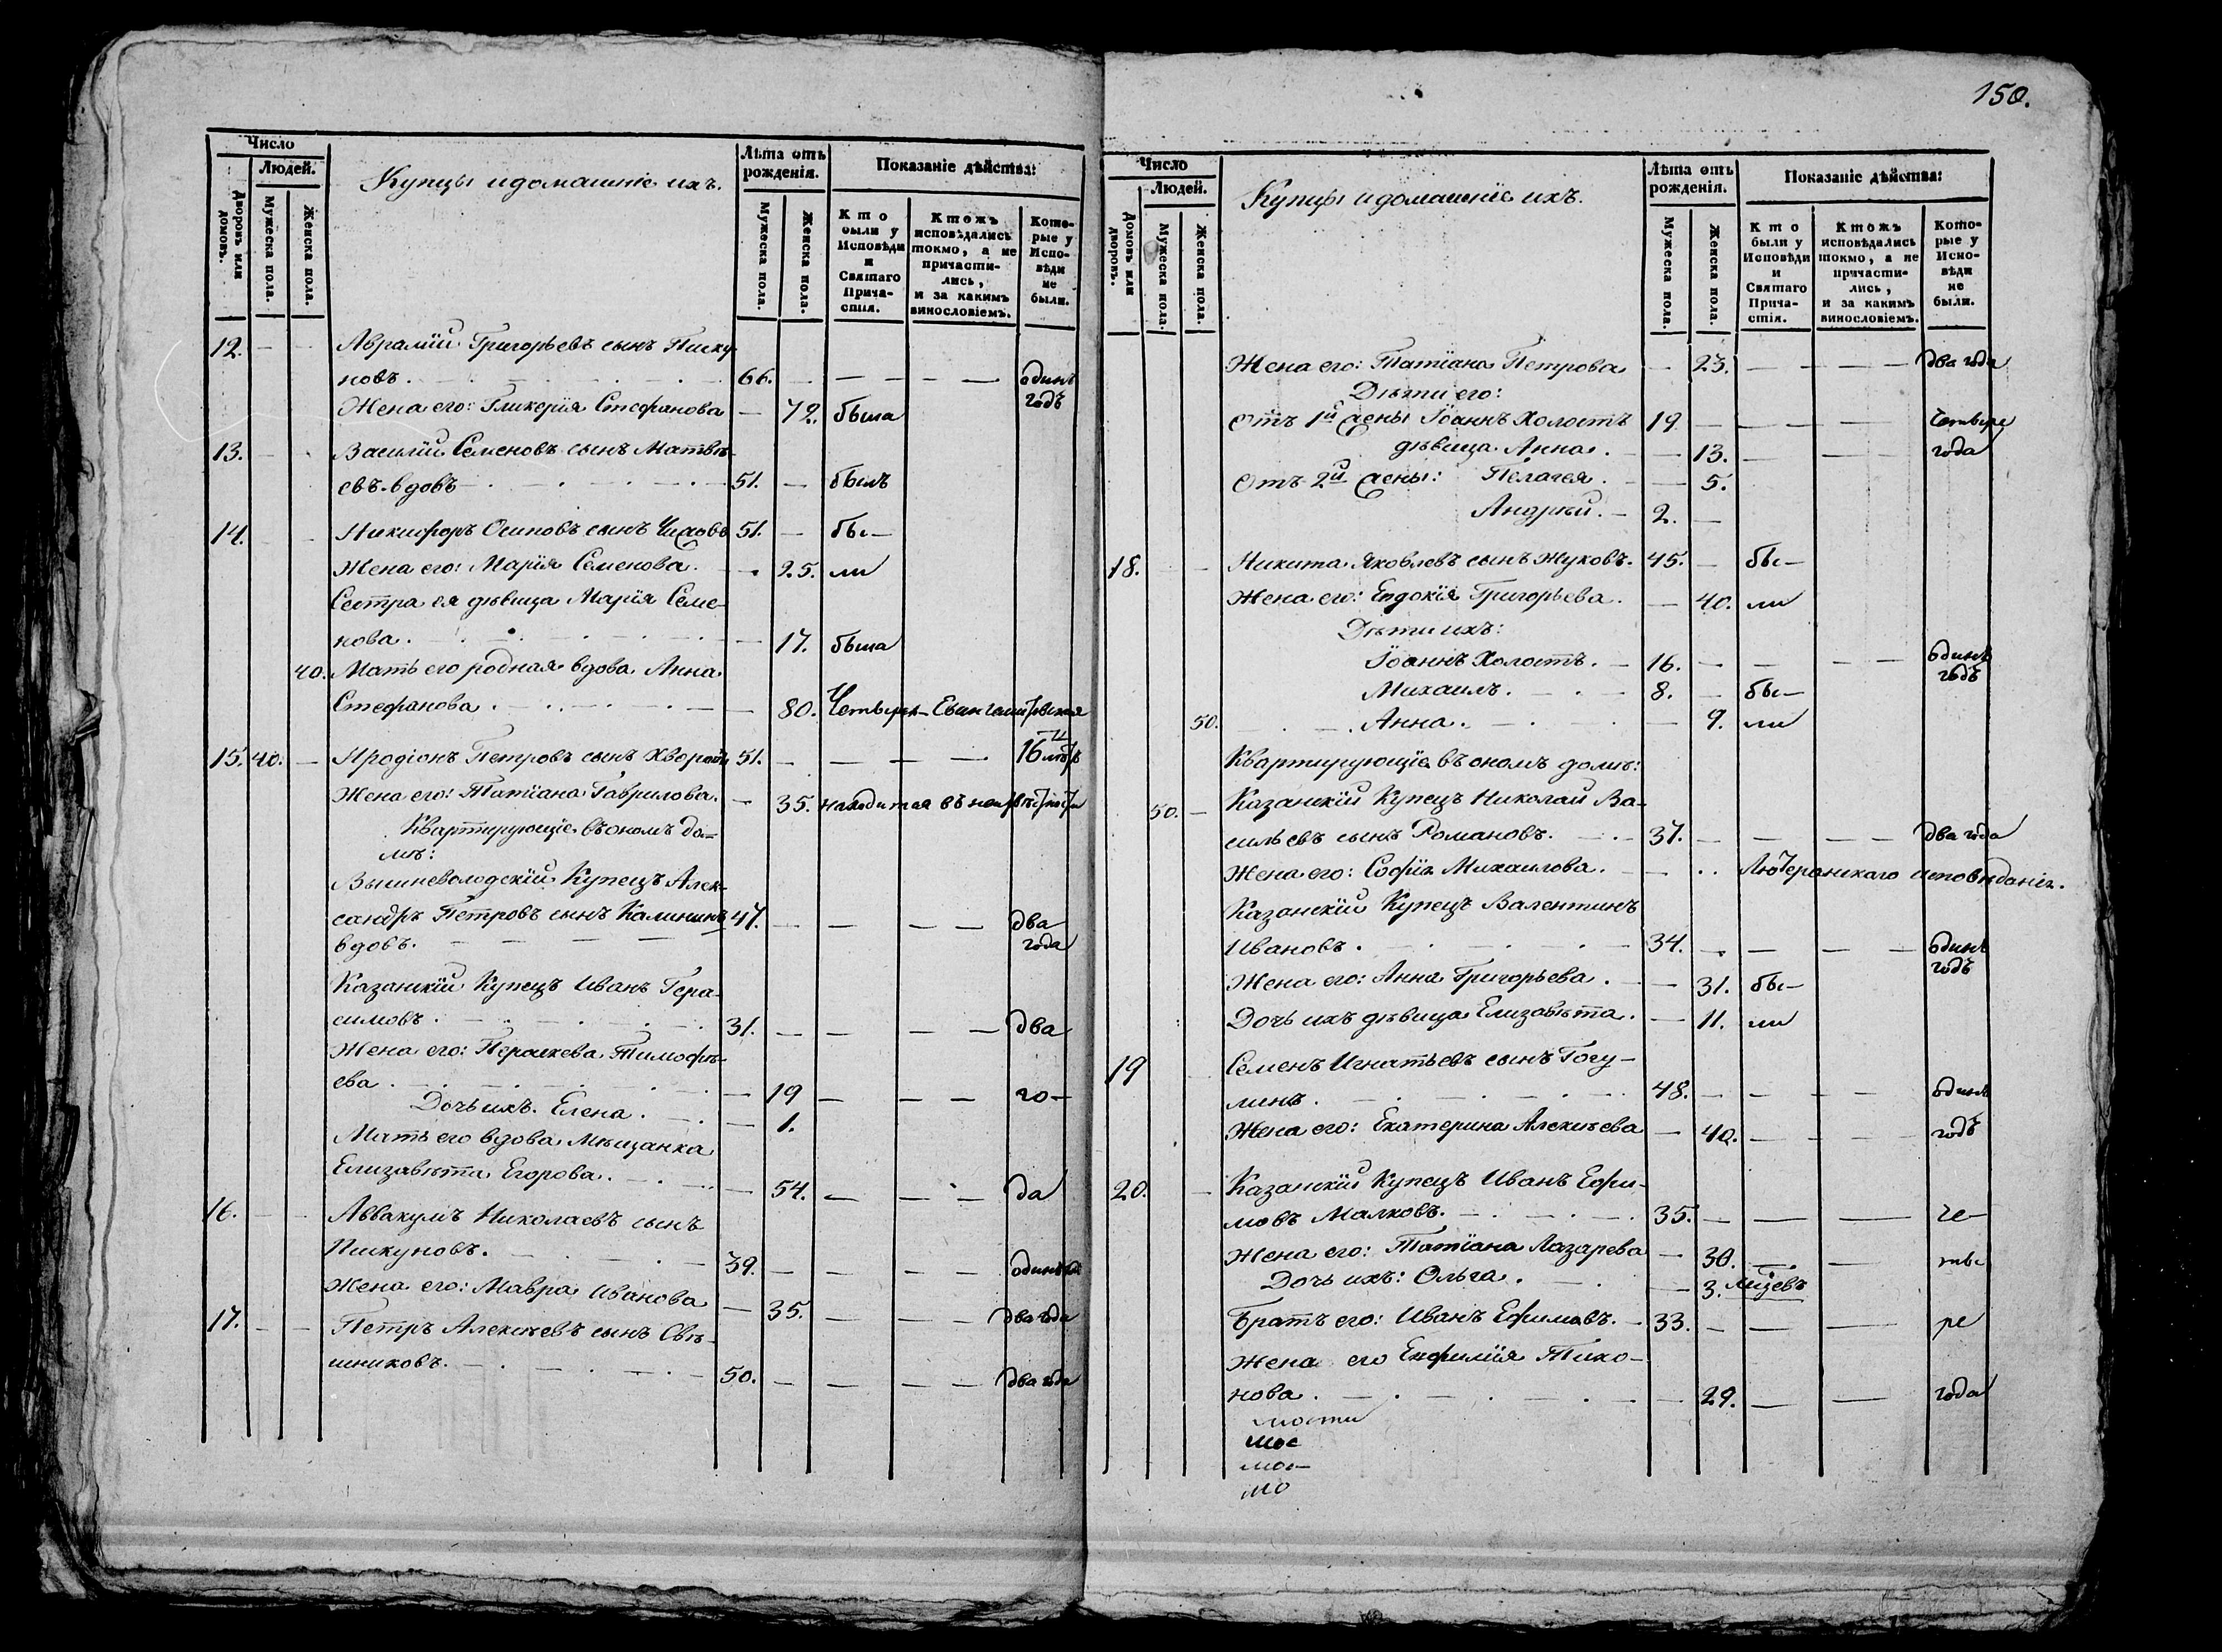 Число
Людей.
Дворовъ или домовъ.
Мужеска пола.
Женска пола.
Купцы и домашніе ихъ.
Лѣта отъ
рожденія.
Мужеска пола.
Женска пола.
Показаніе дѣйства:
Кто
были у
Исповѣди
и
Святаго
Прича-
стія.
Ктожъ
исповѣдались
токмо, а не
причасти-
лись,
и за какимъ
винословіемъ.
Кото-
рые у
Испо-
вѣди
не
были.
12. Аврамій Григорьевъ сынъ Писку-
новъ. 66. одинъ
годъ
Жена его: Гликерія Стефанова 72. была
13. Василій Семеновъ сынъ Матвѣ-
евъ вдовъ 51. былъ
14. Никифоръ Осиповъ сынъ 51. бы-
Жена его: Марія Семенова. 25. ли
Сестра ея дѣвица Марія Семе-
нова. 17. была
40. Мать его родная вдова Анна
Стефанова. 80.
15. 40. Иродіонъ Петровъ сынъ 51. 16
Жена его: Татіана Гаврилова. 35. находится въ
Квартирующіе въ ономъ до-
мѣ:
Вышневолодскій Купецъ Алек-
сандръ Петровъ сынъ Калининъ 47. два
вдовъ. года
Казанскій Купецъ Иванъ Гера-
симовъ. 31. два
Жена его: Параскева Тимофѣ-
ева. 19 го-
Дочь ихъ. Елена. 1.
Мать его вдова мѣщанка
Елизавѣта Егорова. 54. да
16. Аввакумъ Николаевъ сынъ
Пискуновъ. 39. одинъ
Жена его: Мавра Иванова 35. два года
17. Петръ Алексѣевъ сынъ Свѣ-
шниковъ. 50. два года
150.
Число
Людей.
Домовъ или дворовъ.
Мужеска пола.
Женска пола.
Купцы и домашніе ихъ.
Лѣта отъ
рожденія.
Мужеска пола.
Женска пола.
Показаніе дѣйства:
Кто
были у
Исповѣди
и
Святаго
Прича-
стія.
Ктожъ
исповѣдались
токмо, а не
причасти-
лись,
и за какимъ
винословіемъ.
Кото-
рые у
Испо-
вѣди
не
были.
Жена его: Татіана Петрова 23. два года
Дѣти его:
Отъ 1й жены Іоаннъ Холостъ 19 четыре
дѣвица Анна. 13. года
Отъ 2й жены: Пелагея. 5.
Андрей. 2.
18. Никита Яковлевъ сынъ Жуковъ. 45. бы-
Жена его: Евдокія Григорьева. 40. ли
Дѣти ихъ:
Іоаннъ Холостъ. 16. одинъ
годъ
Михаилъ. 8. бы-
50. Анна. 9. ли
Квартирующіе въ ономъ домѣ:
50. Казанскій Купецъ Николай Ва-
сильевъ сынъ Романовъ. 37. два года
Жена его: Софія Михаилова. Лютеранскаго исповѣданія.
Казанскій Купецъ Валентинъ
Ивановъ. 34. одинъ
годъ
Жена его: Анна Григорьева. 31. бы-
Дочь ихъ дѣвица Елизавѣта. 11. ли
19 Семенъ Игнатьевъ сынъ Гогу-
линъ. 48. одинъ
Жена его: Екатерина Алексѣева 40. годъ
20. Казанскій Купецъ Иванъ Ефи-
мовъ Малковъ. 35. че-
Жена его: Татіана Лазарева 30. ты-
Дочь ихъ: Ольга. 3.
Братъ его: Иванъ Ефимовъ. 33. ре
Жена его Евфимія Тихо-
нова. 29. года
мости
мос
мос-
мо